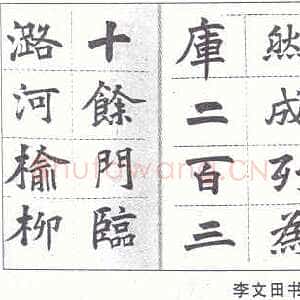 然成列為
庫二百三
十餘門臨
潞河榆柳
李文田书
shufawang.CN